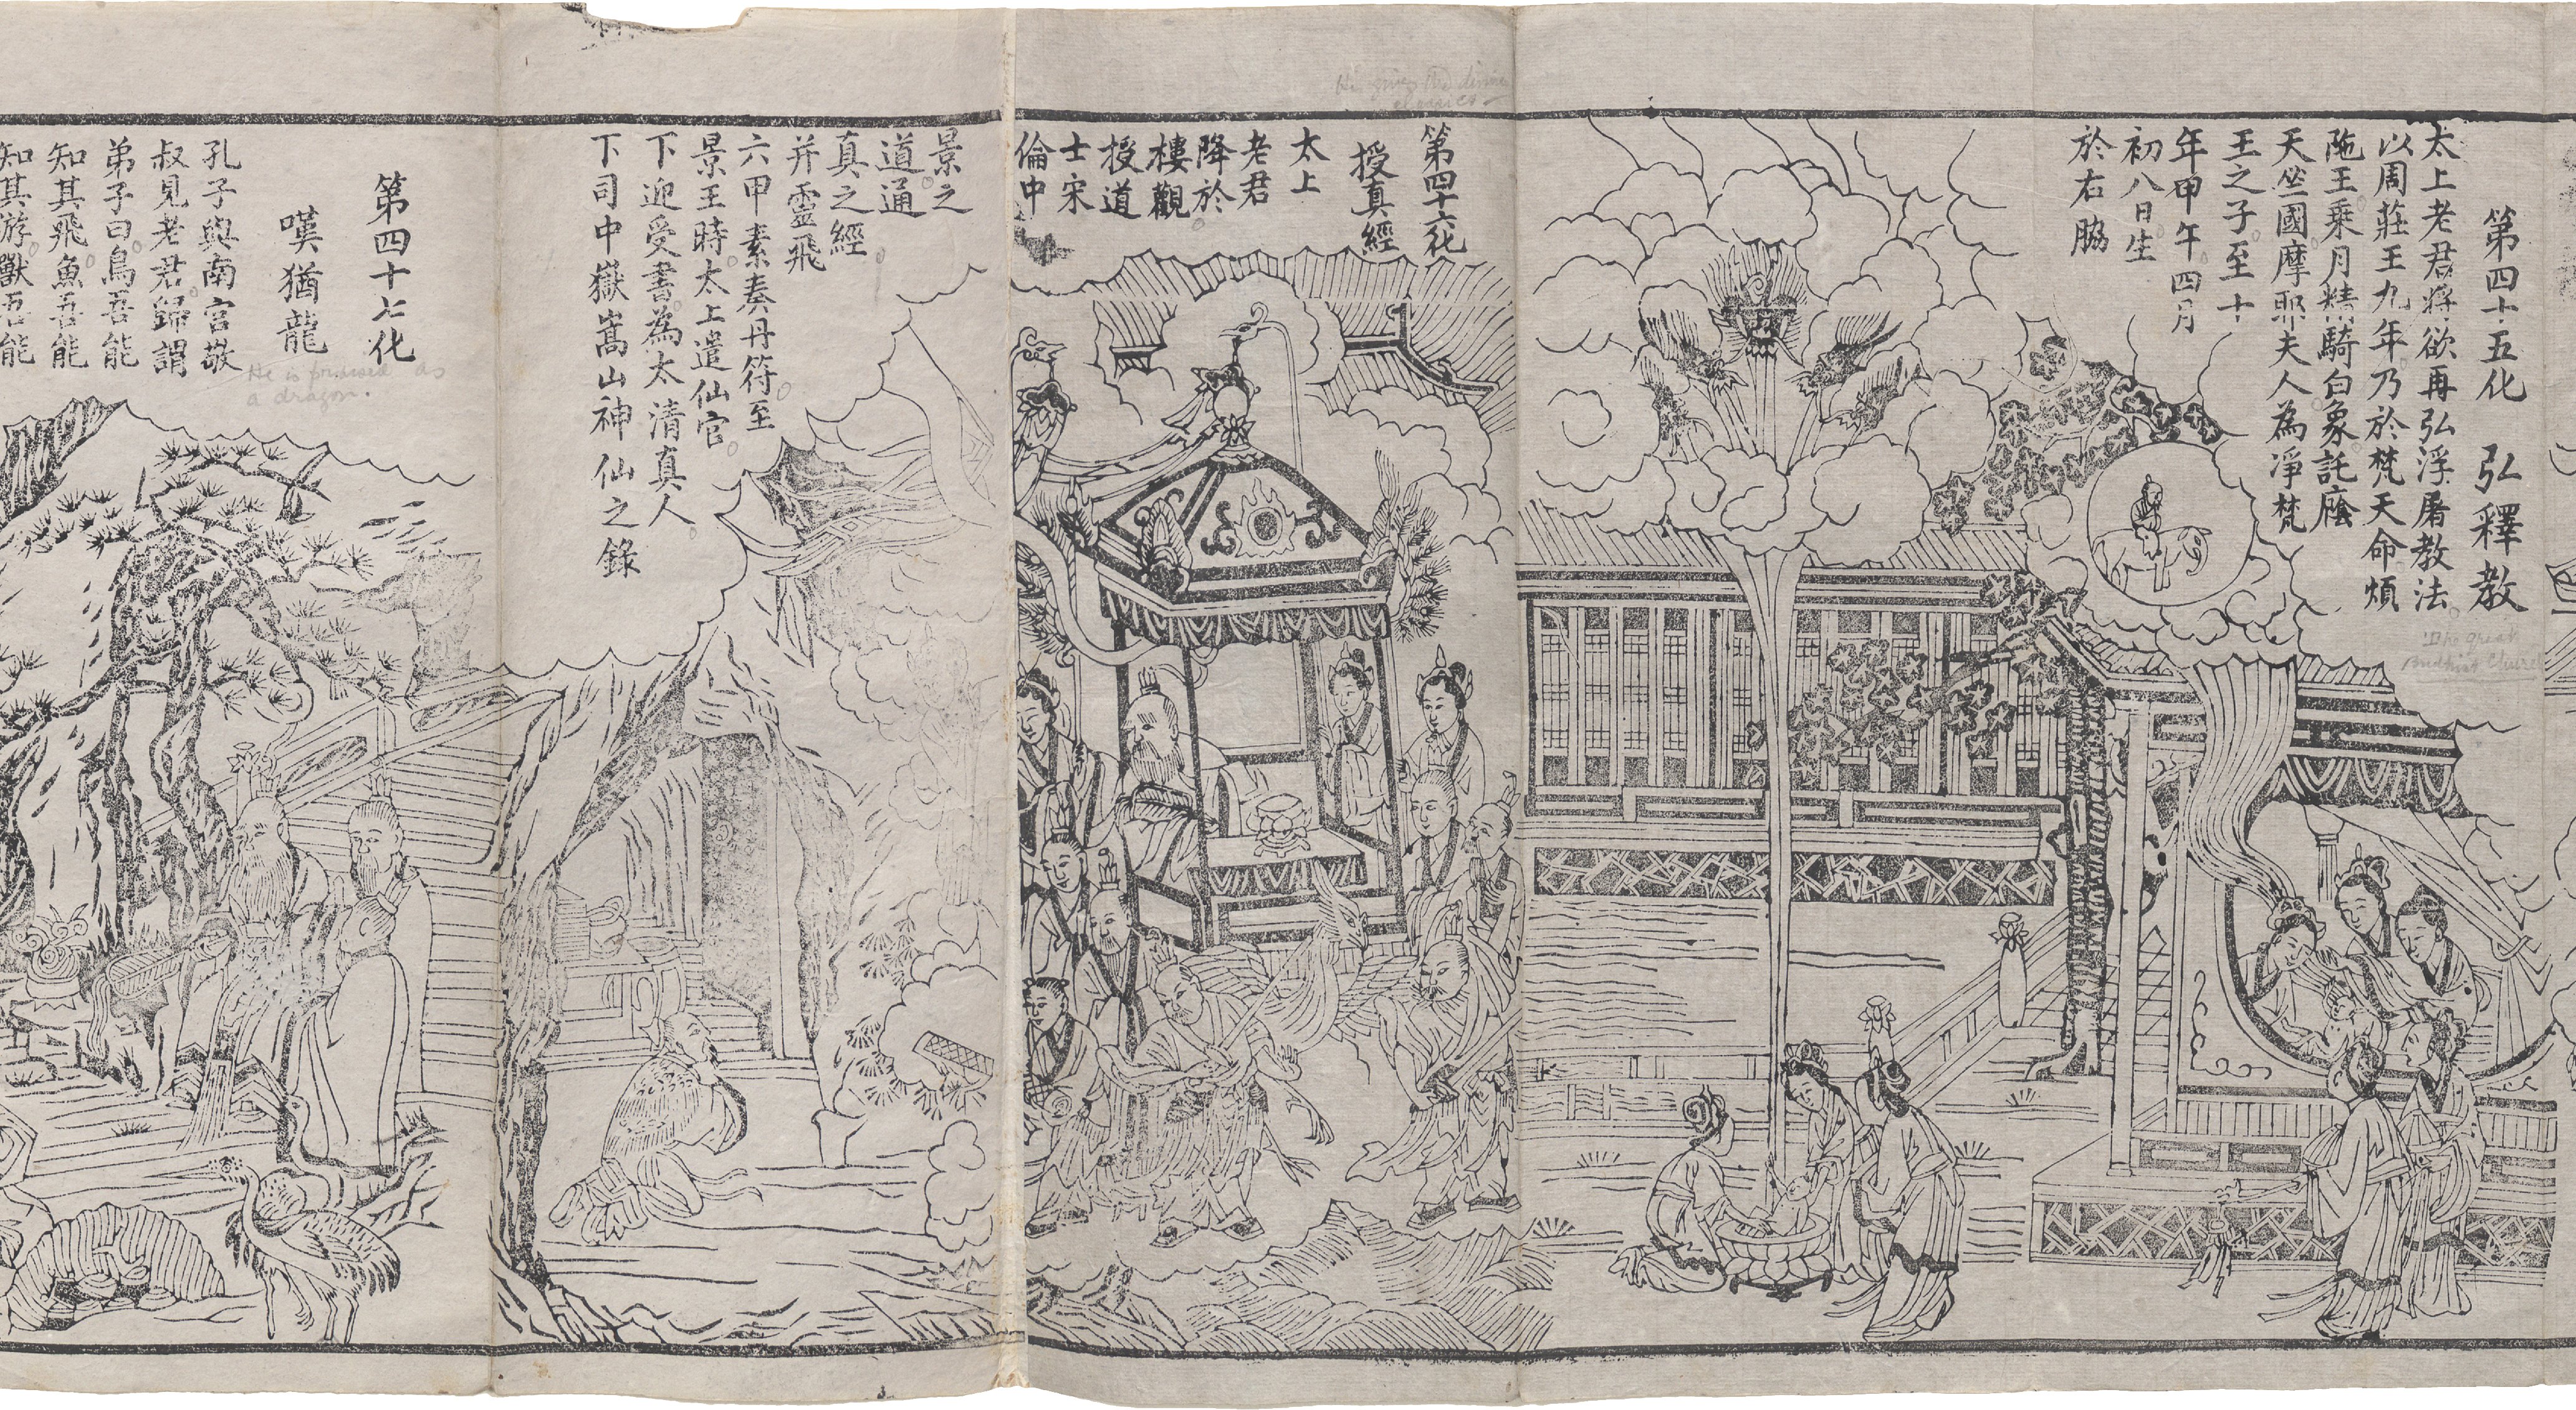 第四十五化 弘釋教
太上老君將欲再弘浮屠教法
以周莊王九年乃於梵天命煩
陁王乘月精騎白象託䕃
天竺國摩耶夫人為淨梵
王之子至十
年甲午四月
初八日生
於右脇
The great
Buddhist Church
第四十六化
授真經
He gives the divine
classics
太上
老君
降於
樓觀
授道
士宋
倫中
景之
道通
真之經
并靈飛
六甲素奏丹符至
景王時太上遣仙官
下迎受書為太清真人
下司中嶽嵩山神仙之錄
第四十七化
嘆猶龍
He is praised as
a dragon.
孔子與南宮敬
叔見老君歸謂
弟子曰鳥吾能
知其飛魚吾能
知其游獸吾能